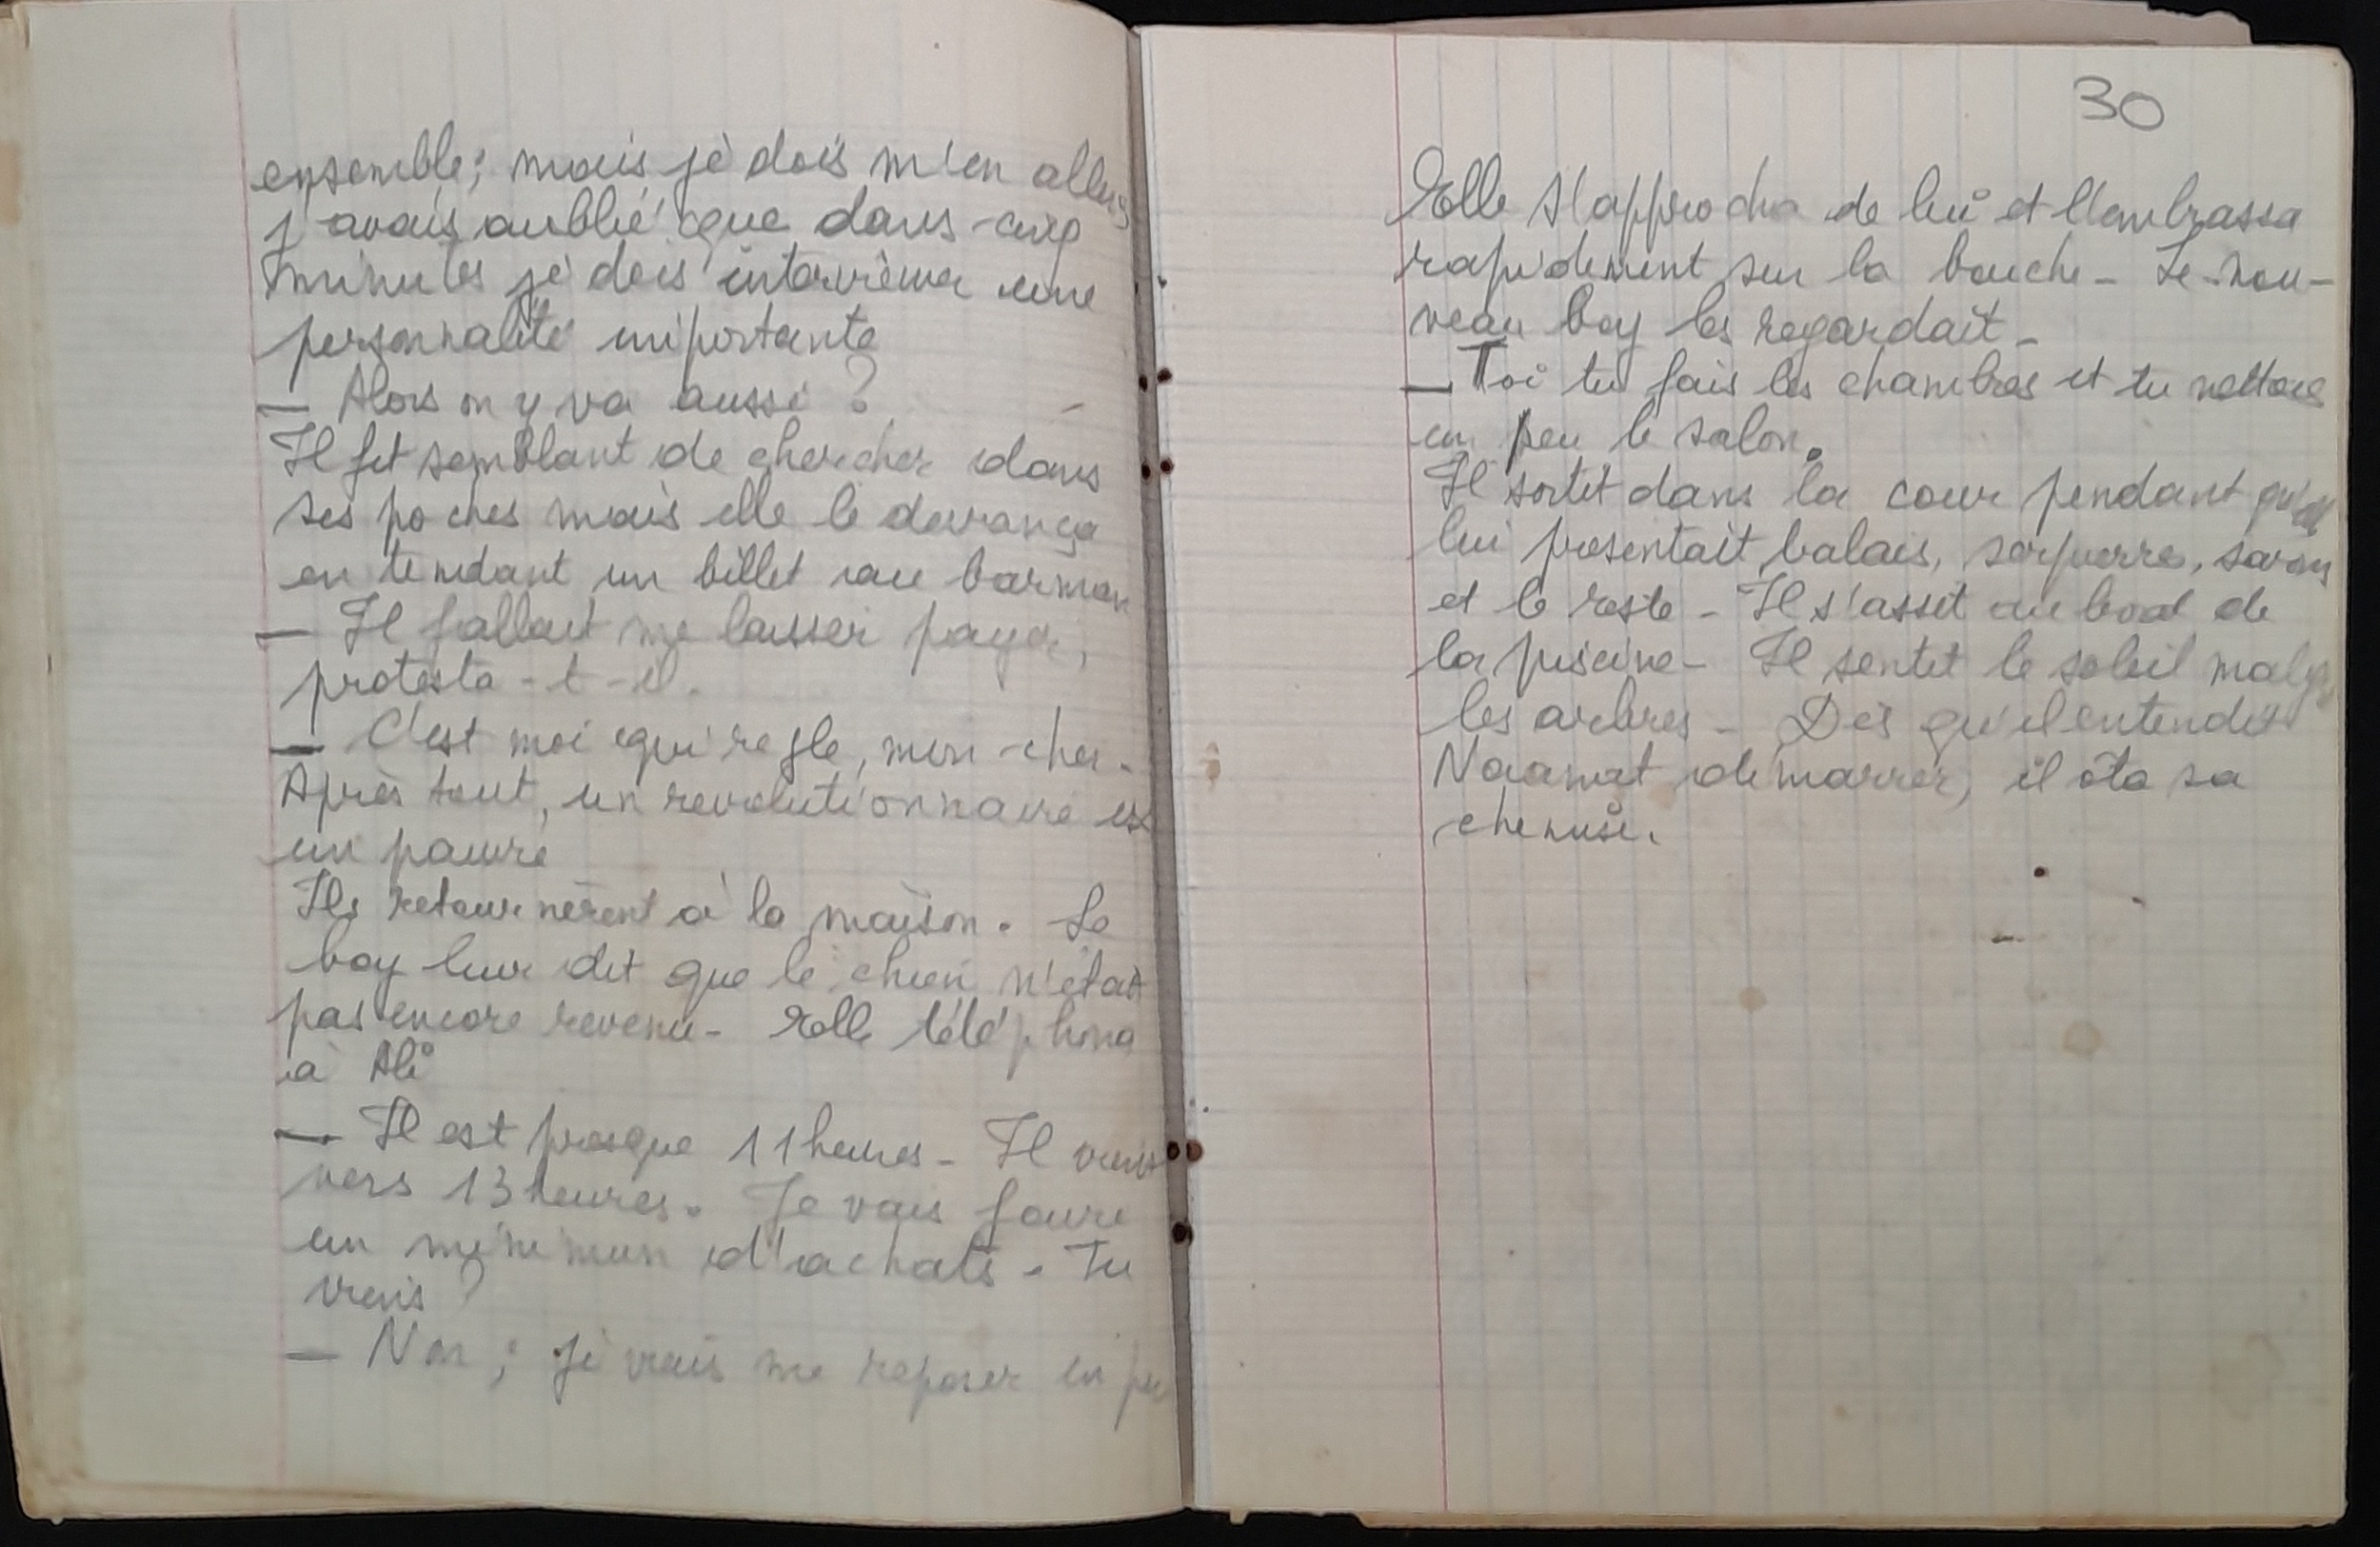 ensemble; mais je dois m'en aller;
j'avais oublié que dans cinq
minutes je dois interviewer une
personnalité importante
— Alors on y va aussi ?
Il fit semblant de chercher dans
ses poches mais elle le devança
en tendant un billet au barman
— Il fallait me laisser payer,
protesta-t-il.
— C'est moi qui regle, mon cher.
Après tout, un revolutionnaire est
un pauvre
Ils retournèrent à la maison. Le
boy leur dit que le chien n'était
pas encore revenu - Elle téléphona
à Ali
— Il est presque 11 heures - Il vient
vers 13 heures. Je vais faire
un minimum d'achats - Tu
viens ?
— Non ; je vais me reposer un peu
30
Elle s'approcha de lui et l'embrassa
rapidement sur la bouche - Le nou-
veau boy les regardait -
— Toi tu fais les chambres et tu nettoies
un peu le salon.
Il sortit dans la cour pendant qu'elle
lui presentait balais, serpierres, savons
et le reste - Il s'assit au bord de
la piscine - Il sentit le soleil malgré
les arbres - Dès qu'il entendit
Naamat démarrer, il ôta sa
chemise.